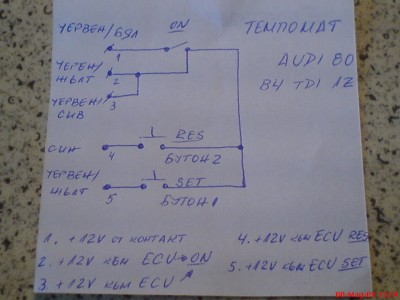 ЧЕРВЕН/БЯЛ
ON
ТЕМПОМАТ
1
AUDI 80
ЧЕРЕН/ЖЪЛТ
2
B4 TDI 1Z
ЧЕРВЕН/СИВ
3
СИН
4
RES
БУТОН 2
ЧЕРВЕН/ЖЪЛТ
5
SET
БУТОН 1
1. +12V ОТ КОНТАКТ
2. +12V КЪМ ECU → ON
3. +12V КЪМ ECU
4. +12V КЪМ ECU RES
5. +12V КЪМ ECU SET